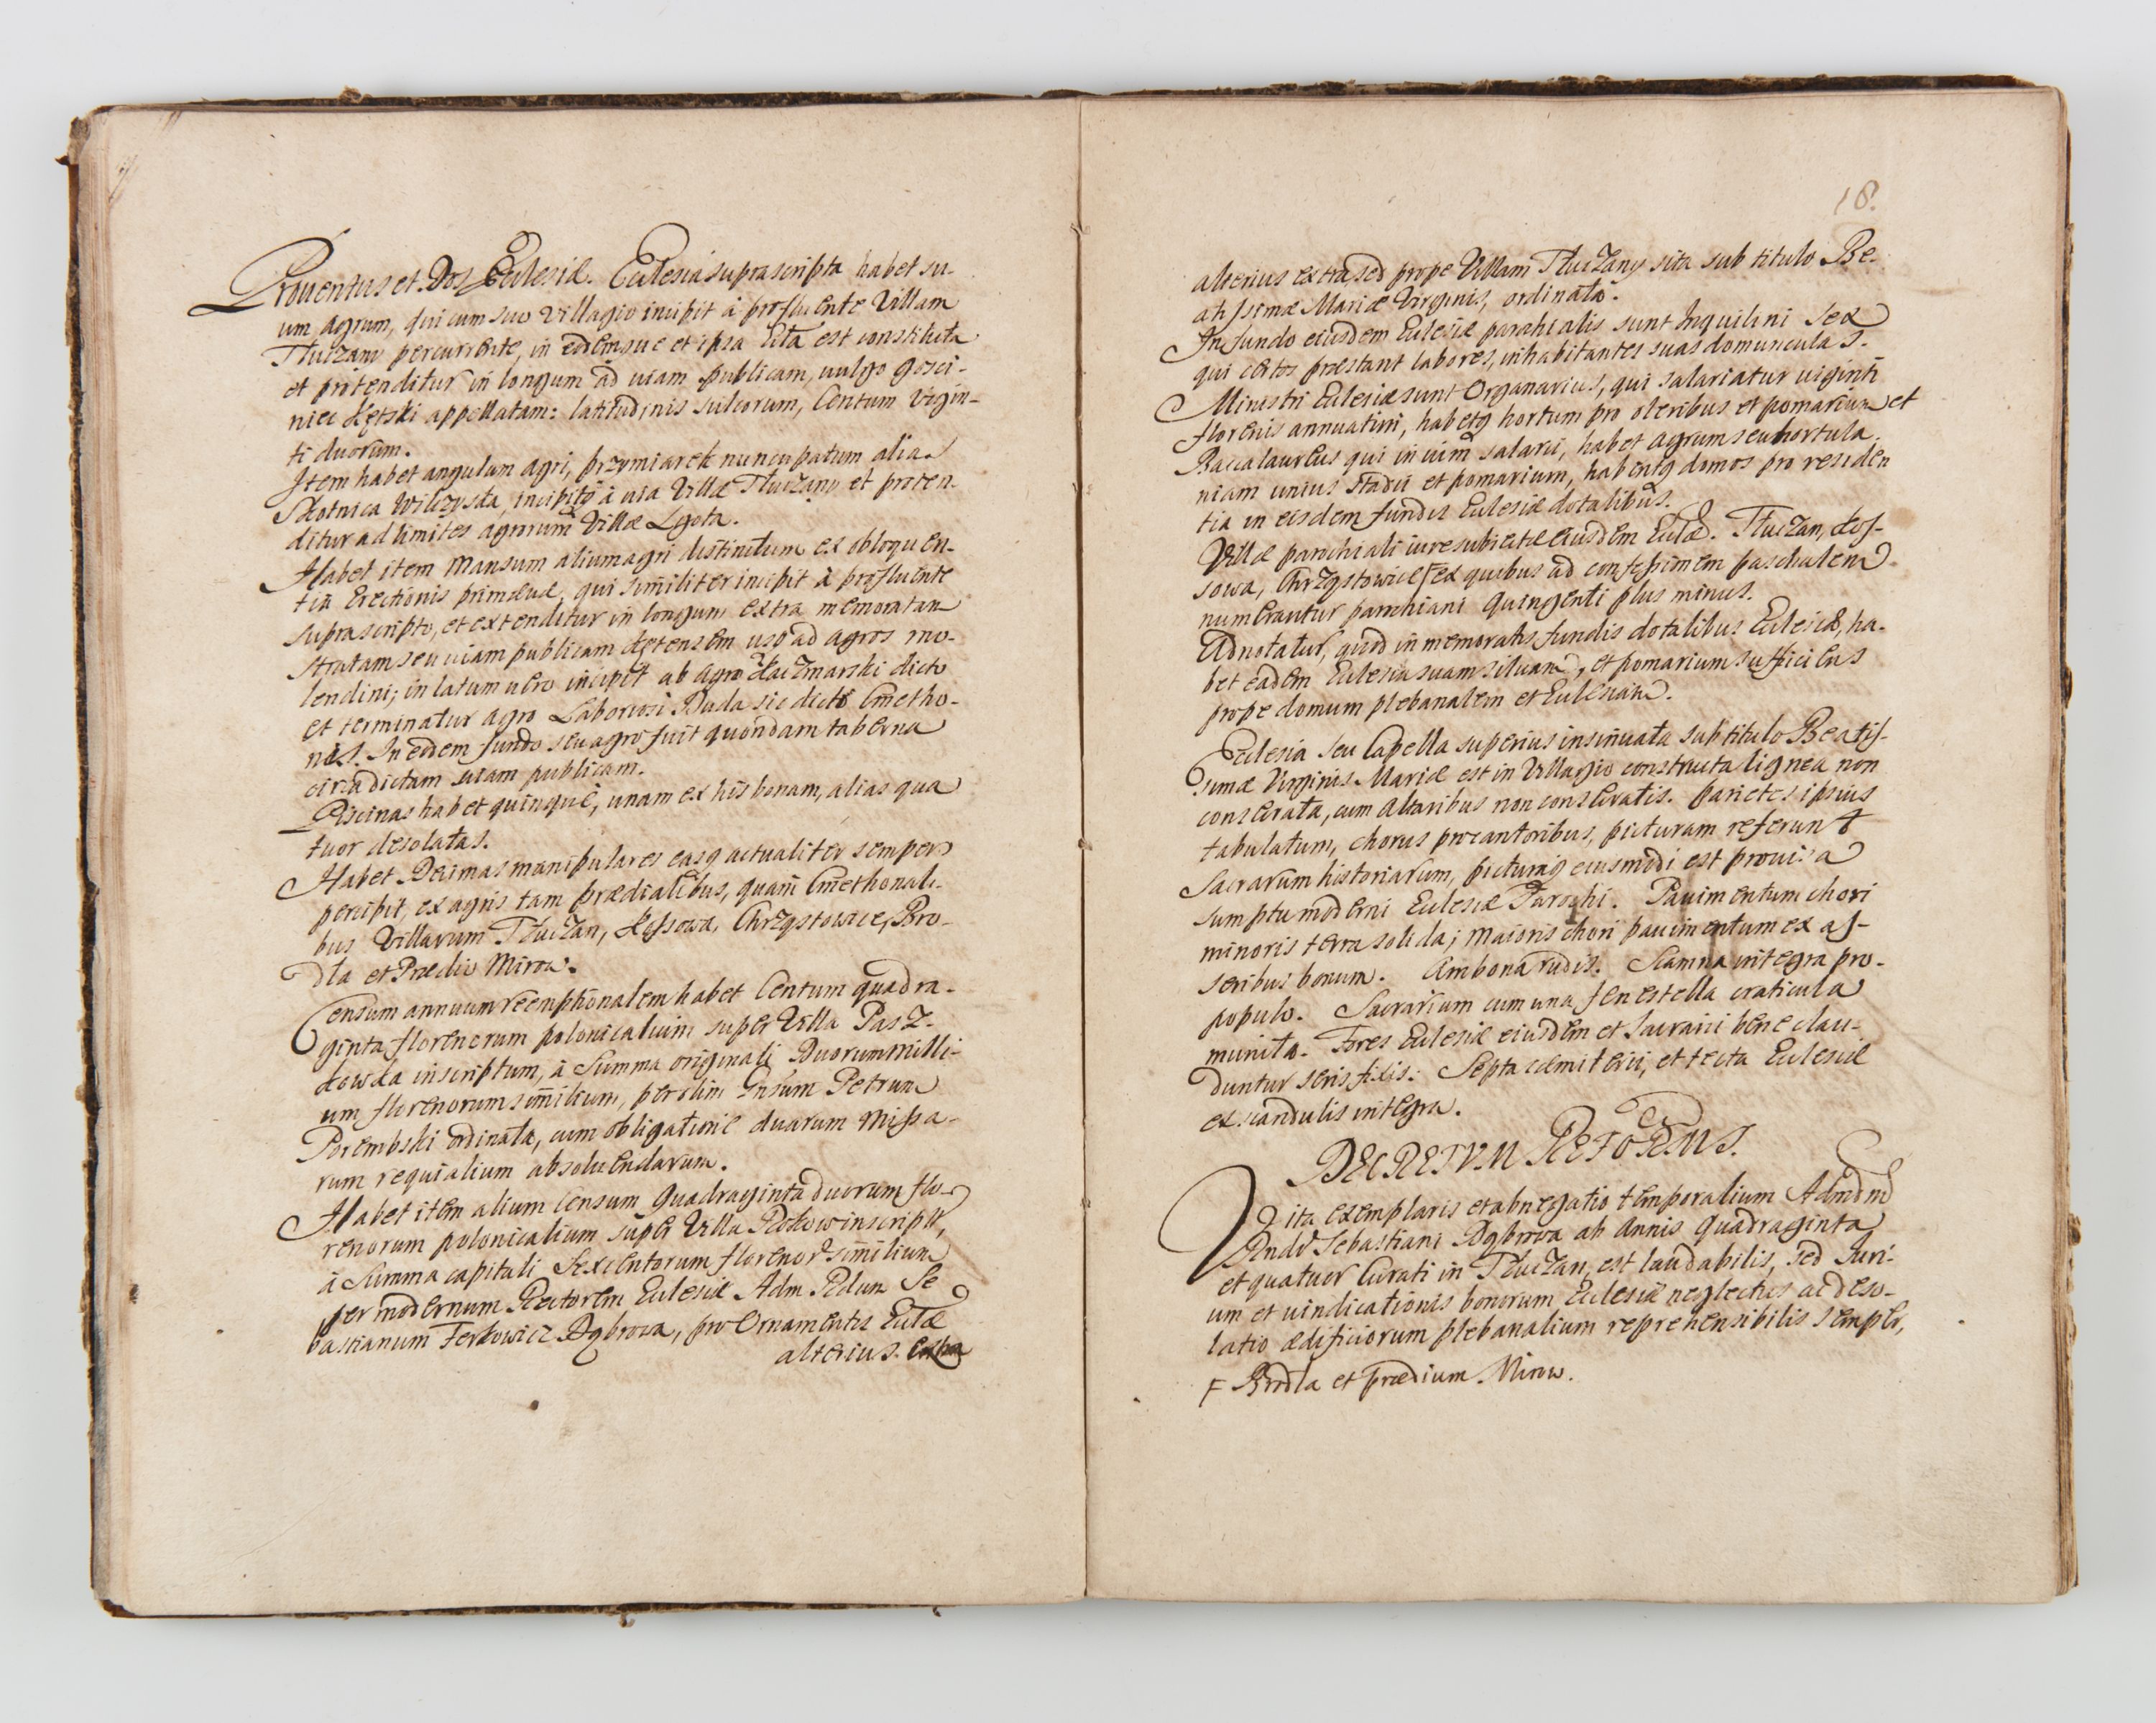 Prouentus et Dos Ecclesiæ. Ecclesia suprascripta habet su-
um agrum, qui cum suo Villagio incipit à profluente Villam
Tłuczany percurrente, in eodemque et ipsa Ecclã est constituta
et protenditur in longum ad uiam publicam, uulgo gosci-
niec Kętski appellatam: latitudinis sulcorum, Centum Vigin-
ti duorum.
Item habet angulum agri, przymiarek nuncupatum alias
Słotnica Wilczyska, incipitq à uia Villæ Tłuczany et proten-
ditur ad limites agrorum Villæ Lgota.
Habet item Mansum alium agri distinctum ex obloquen-
tia Erectionis primæuæ, qui similiter incipit à profluente
suprascripto, et extenditur in longum extra memoratam
stratam seu uiam publicam Kętensem usq ad agros mo-
lendini; in latum uero incipit ab agro Kaczmarski dicto
et terminatur agro Laboriosi Duda sic dicto Cmetho-
nis. In eodem fundo seu agro fuit quondam taberna
circa dictam uiam publicam.
Piscinas habet quinque, unam ex his bonam, alias qua
tuor desolatas.
Habet Decimas manipulares easq actualiter semper
percipit, ex agris tam prædialibus, quam Cmethonali-
bus Villarum Tłuczan, Kossowa, Chrząstowice, Bro-
dła et Prædio Mirow.
Censum annuum reemptionalem habet Centum quadra-
ginta florenorum polonicalium super Villa Pasz-
kowka inscriptum, à Summa originali Duorum milli-
um florenorum similium, per olim Gnsum Petrum
Porembski ordinata, cum obligatione duarum Missa-
rum requialium absoluendarum.
Habet item alium Censum Quadraginta duorum flo-
renorum polonicalium super Villa Rokow inscriptũ,
à Summa capitali Sexcentorum florenorũ similium
per modernum Rectorem Ecclesiæ Adm. Rdum Se
bastianum Ferkowicz Dąbrowa, pro Ornamentis Ecclæ
alterius. extra
18.
alterius extra sed prope Villam Tłuczany sita sub titulo Be-
atissimæ Mariæ Virginis, ordinata.
In fundo eiusdem Ecclesiæ parochialis sunt Inquilini Sex
qui certos præstant labores, inhabitantes suas domunculas.
Ministri Ecclesiæ sunt Organarius, qui salariatur uiginti
florenis annuatim, habetq hortum pro oleribus et pomarium et
Baccalaureus qui in uim salarii, habet agrum seu hortula-
niam unius stadii et pomarium, habentq domos pro residen
tia in eisdem fundis Ecclesiæ dotalibus.
Villæ parochiali iure subiectæ eiusdem Ecclæ. Tłuczan, Kos-
sowa, Chrząstowice F ex quibus ad confessionem paschalem
numerantur parochiani Quingenti plus minus.
Adnotatur, quod in memoratis fundis dotalibus Ecclesiæ, ha-
bet eadem Ecclesia suam siluam, et pomarium sufficiens
prope domum plebanalem et Ecclesiam.
Ecclesia seu Capella superius insinuata sub titulo Beatis-
simæ Virginis Mariæ est in Villagio constructa lignea non
consecrata, cum Altaribus non consecratis. Parietes ipsius
tabulatum, chorus pro cantoribus, picturam referunt
Sacrarum historiarum, picturaq eiusmodi est prouisa
sumptu moderni Ecclesiæ Parochi. Pauimentum chori
minoris terra solida; maioris chori pauimentum ex as-
seribus bonum. Ambona rudis. Scamna integra pro
populo. Sacrarium cum una fenestella craticula
munita. Fores Ecclesiæ eiusdem et Sacrarii bene clau-
duntur seris fixis. Septa cæmiterii, et tecta Ecclesiæ
ex scandulis integra.
DECRETVM REFORMS.
Vita exemplaris et abnegatio temporalium Admdm
Rndi Sebastiani Dąbrowa ab Annis Quadraginta
et quatuor Curati in Tłuczan, est laudabilis, sed Iuri-
um et uindicationis bonorum Ecclesiæ neglectus ac deso-
latio ædificiorum plebanalium reprehensibilis semper,
F Brodła et prædium Mirow.